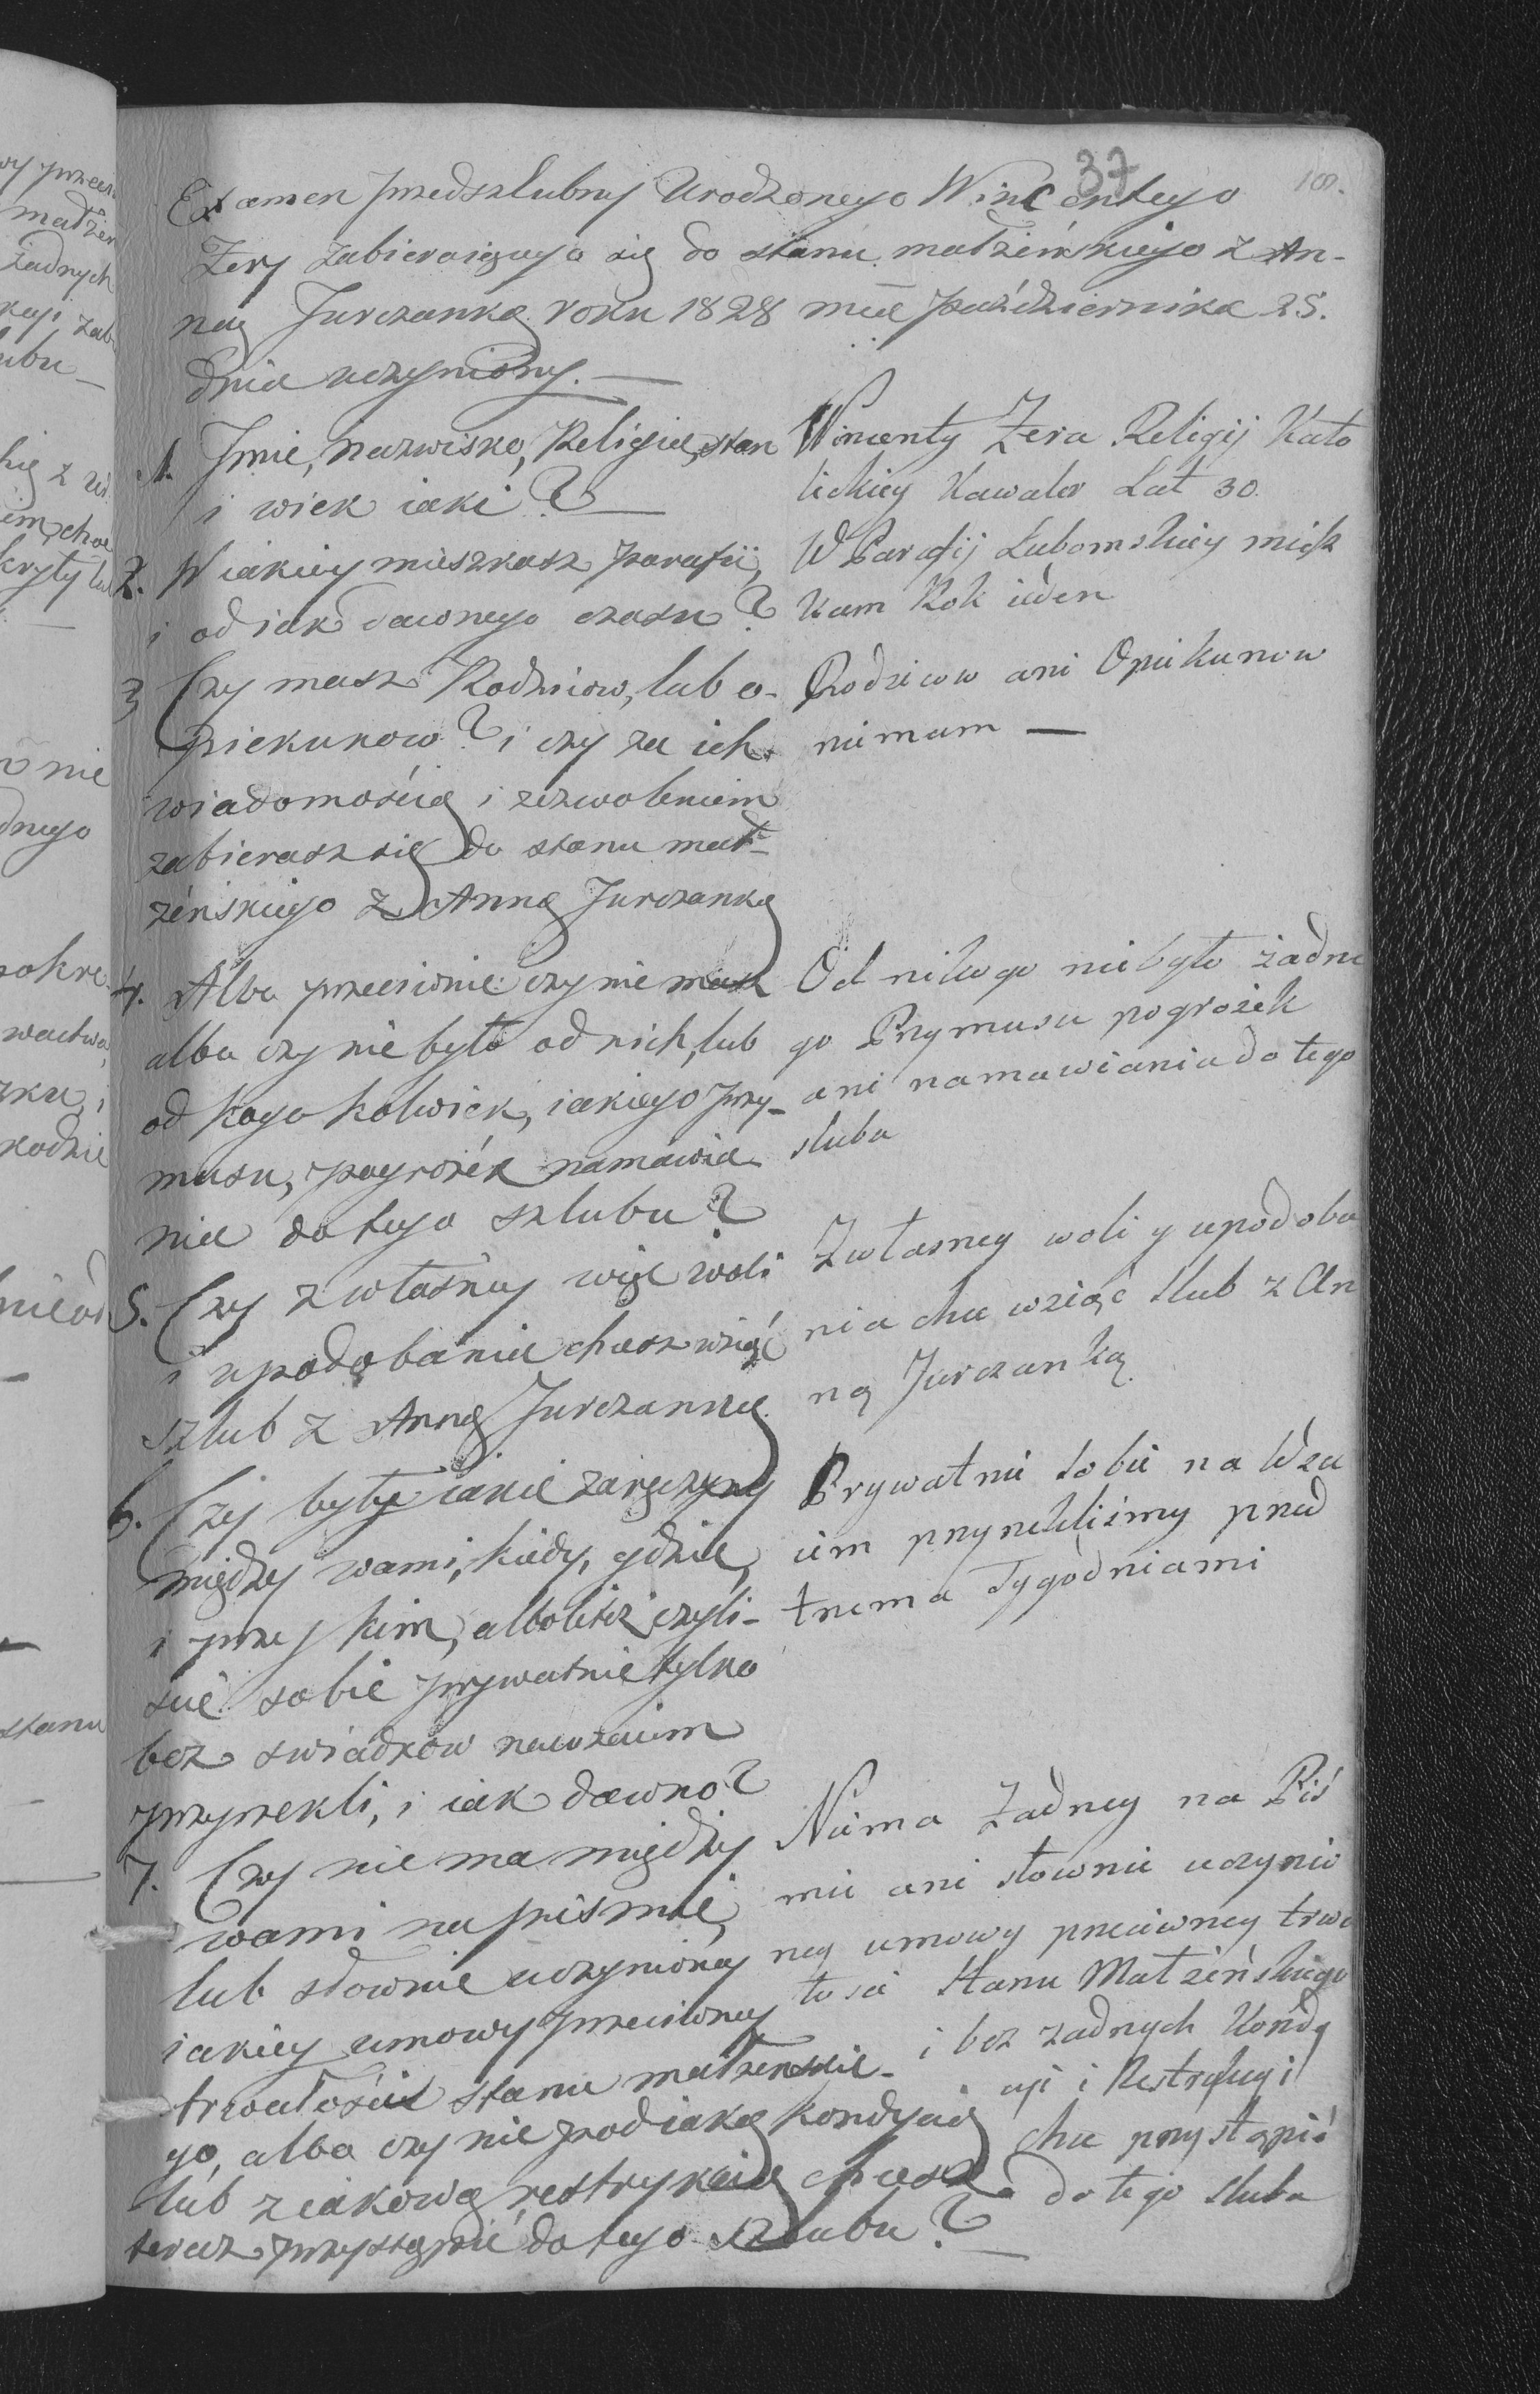 37
Examen przedszlubny Urodzonego Wincentego
Żery zabieraiącego się do stanu małżeńskiego z An-
ną Jurczanką roku 1828 mca Października 25.
dnia uczyniony. —
1. Jmie, nazwisko, Religia, stan
i wiek iaki? —
Wincenty Żera Religij Kato
lickiey Kawaler Lat 30.
2. W iakiey mieszkasz parafii,
i od iak dawnego czasu?
W Parafij Lubomskiey miesz
kam Rok ieden
3 Czy masz Rodziców, lub o-
piekunow? i czy za ich
wiadomością i zezwoleniem
zabierasz się do stanu mał-
żeńskiego z Anną Jurczanką
Rodzicow ani Opiekunow
niemam —
4. Albo przeciwnie czy nie masz
albo czy nie było od nich, lub
od kogo kolwiek, iakiego przy-
musu, pogrożek namawia-
nia do tego szlubu?
Od nikogo niebyło żadne
go Przymusu pogrożek
ani namawiania do tego
slubu
5. Czy z własney więc woli
i upodobania chcesz wziąść
szlub z Anną Jurczanką
Z własney woli y upodoba
nia chce wziąść slub z An
ną Jurczanką
6. Czy były iakie zaręczyny
między wami, kiedy, gdzie,
i przy kim, albo też czyli-
scie sobie prywatnie tylko
bez swiadków nawzaiem
przyrzekli, i iak dawno?
Prywatnie sobie na Wza
iem przyrzekliśmy przed
trzema Tygodniami
7. Czy nie ma między
wami na pismie,
lub słownie uczynioney
iakiey umowy przeciwney
trwałości stanu małżeńskie-
go, albo czy nie pod iaką kondycią
lub z iakową restrykcią chcesz
teraz przystąpić do tego szlubu? —
Niema Żadney na Piś
mie ani słownie uczynio
ney umowy przeciwney trwa
łości Stanu Małżeńskiego
i bez zadnych Kondy
cji i Restrykcyi
chce przystąpić
do tego slubu